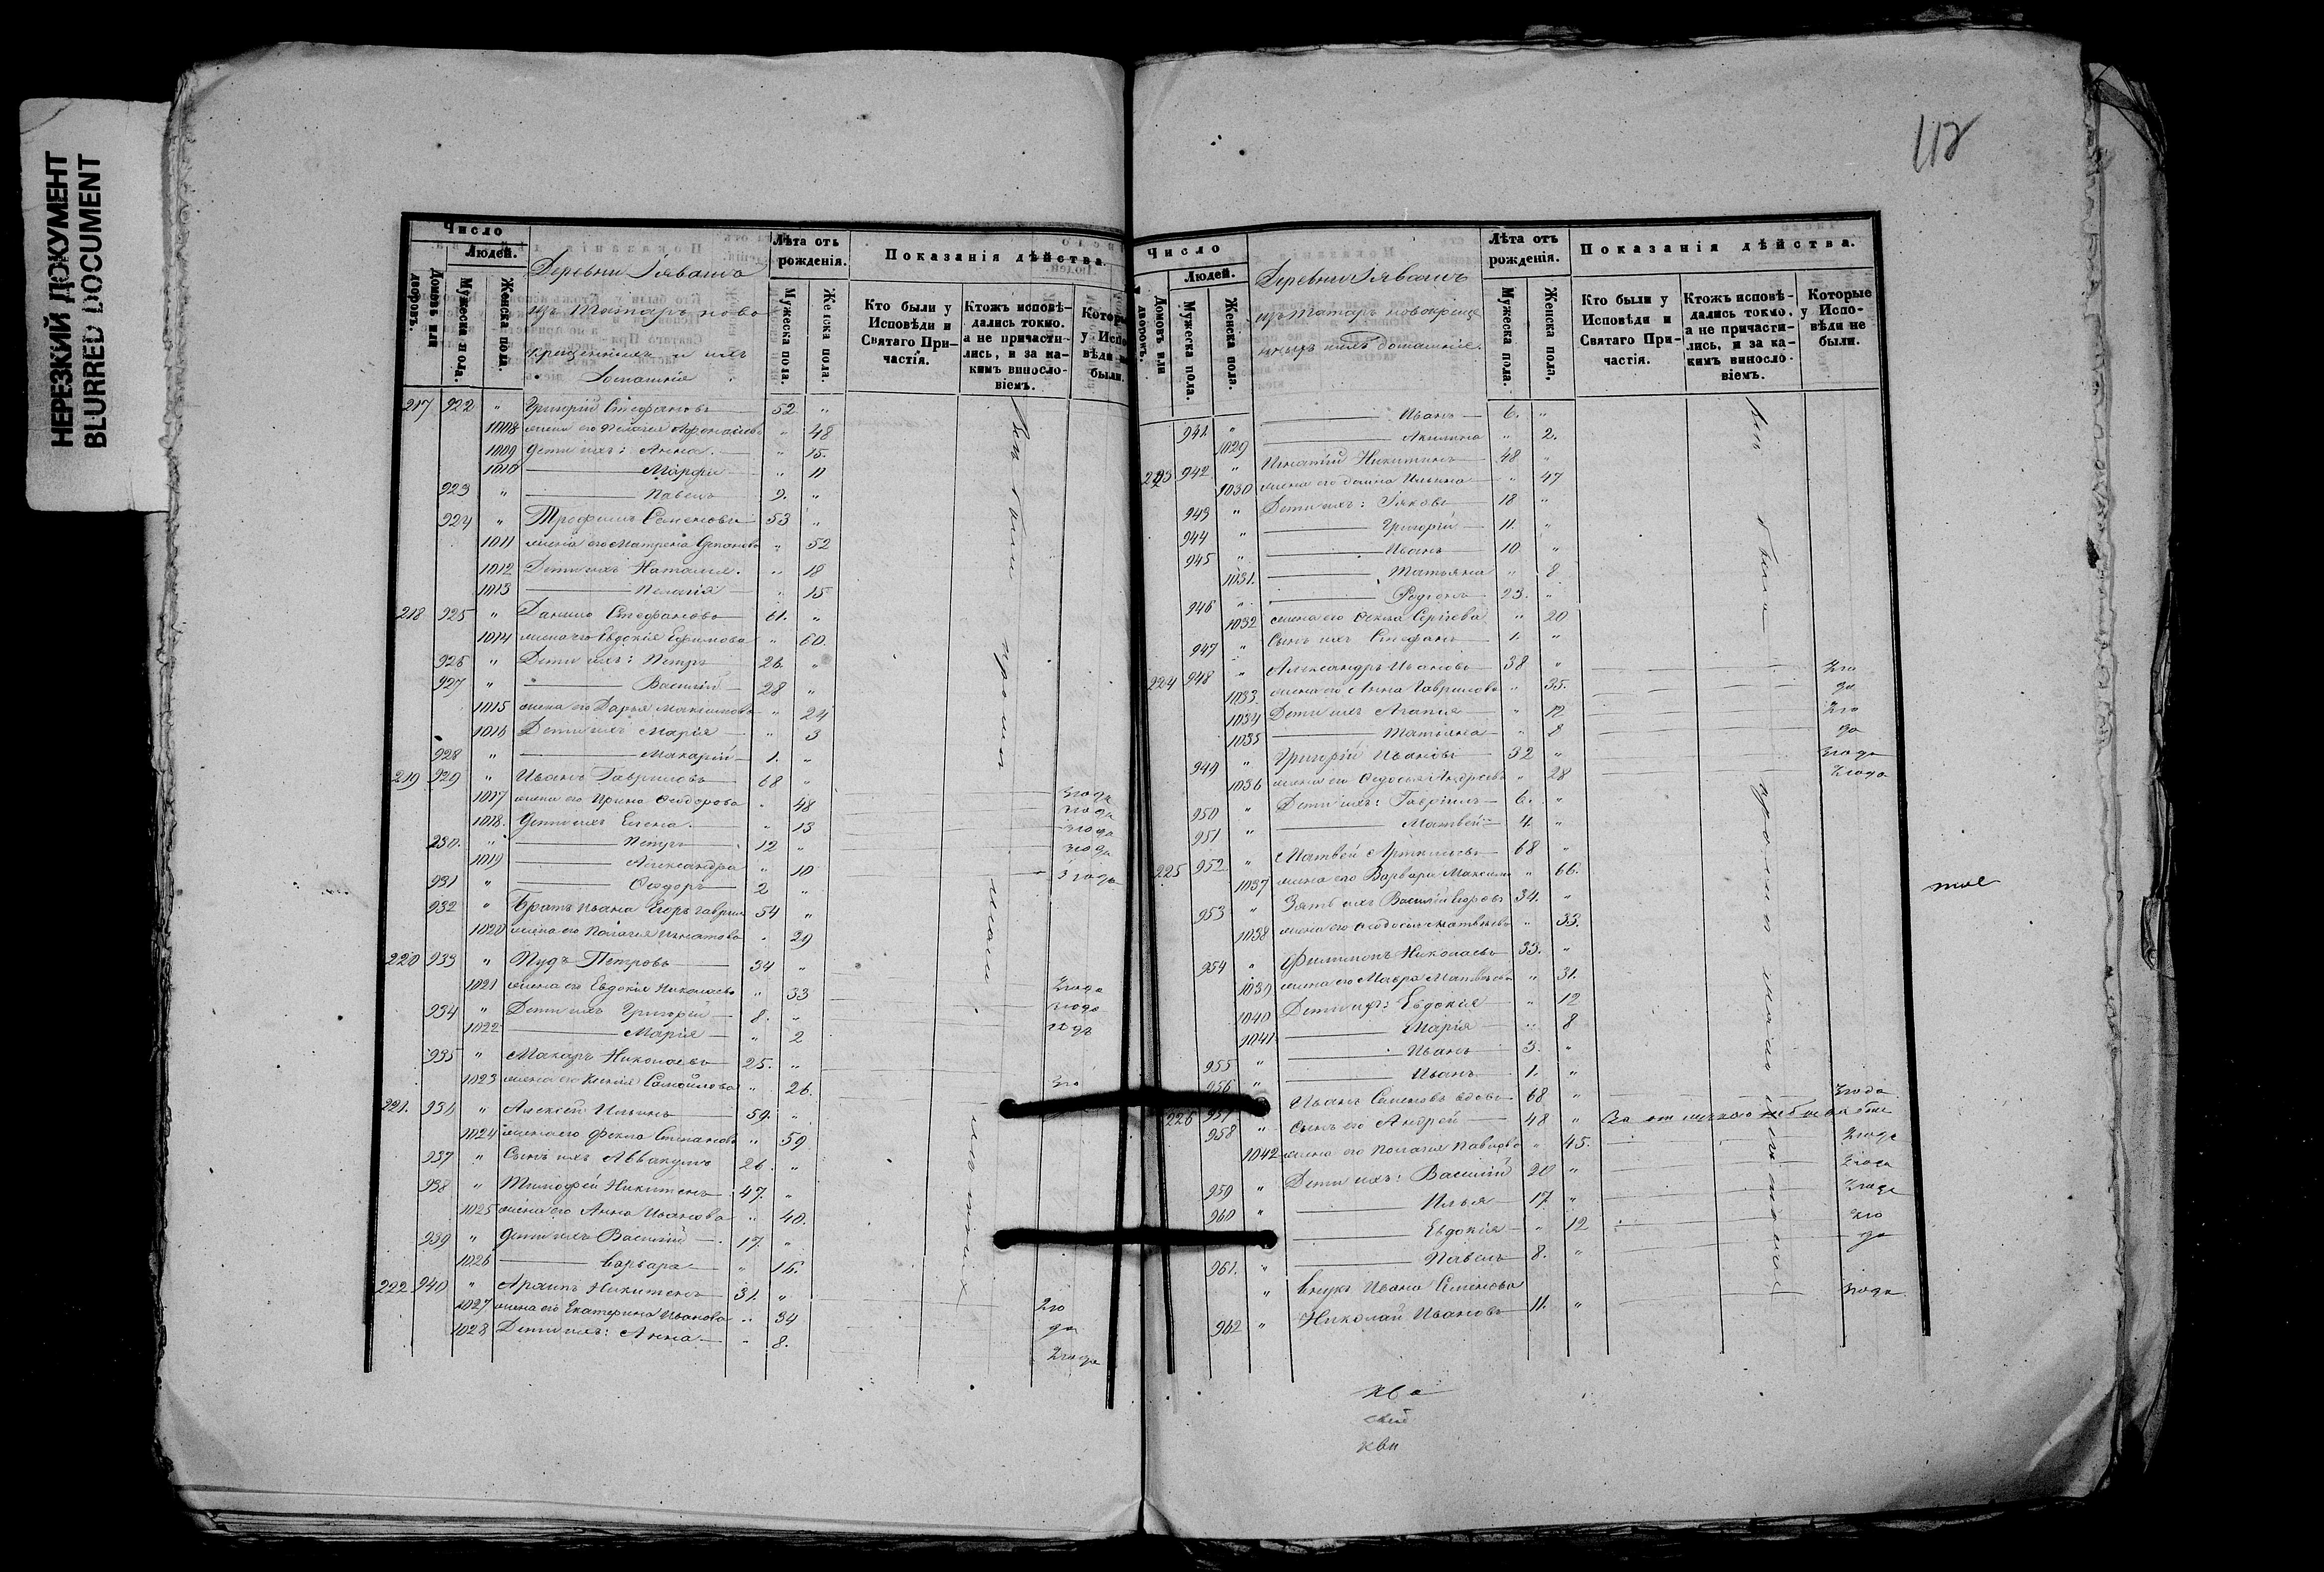 НЕРЕЗКИЙ ДОКУМЕНТ
BLURRED DOCUMENT
Число
Людей.
Домовъ или дворовъ.
Мужеска пола.
Женска пола.
Деревни
изъ Татаръ ново
крещенныхъ и ихъ
Домашнiе
Лѣта отъ рожденiя.
Мужеска пола.
Женска пола.
Показанiя дѣйства.
Кто были у Исповѣди и Святаго При-частiя.
Ктожъ исповѣ-дались токмо, а не причасти-лись, и за ка-кимъ винослo-вiемъ.
217 922 " Григорiй Стефановъ 52 "
1008 жена его Пелагея " 48
1009 Дети ихъ: Анна " 15.
1010 Марфа " 11
923 " Павелъ 9. "
924 " Трофимъ Семеновъ 53 "
1011 жена его Матрена " 52
1012 Дети ихъ Наталiя " 18
1013 Пелагiя " 15
218 925 " Данило Стефановъ 61. "
1014 жена его Евдокiя Ефимова " 60.
926 " Дети ихъ: Петръ 26. "
927 " Василiй 28 "
1015 жена его Дарья Максимова " 24
1016 Дети ихъ Марiя " 3
928 " Макарiй 1. "
219 929 " Иванъ Гавриловъ 68 "
1017 жена его Ирина Ѳеодорова " 48 3 года
1018. Дети ихъ Елена " 13 3 года
930. " Петръ 12 " 3 года
1019 Александра " 10 3 года
931 " Ѳеодоръ 2 " 3 года
932 " Братъ Ивана Егоръ Гаврил 54 "
1020 жена его Пелагея Игнатова " 29
220 933 " Пудъ Петровъ 34 "
1021 жена его Евдокiя Николаева " 33 2 года
934 " Дети ихъ Григорiй 8. " 2 года
1022 Марiя " 2
935 " Макаръ Николаевъ 25. "
1023 жена его Ксенiя Самойлова " 26.
221. 936 " Алексей Ильинъ 59. "
1024 жена его Фекла Степанова " 59
937 " Сынъ ихъ Аввакумъ 26. "
938 " Тимофей Никитинъ 47. "
1025 жена его Анна Иванова " 40.
939 " Дети ихъ Василiй 17. "
1026 Варвара " 16.
222 940 " Архипъ Никитинъ 31. "
1027 жена его Екатерина Иванова " 34 2 го
да
1028 Дети ихъ: Анна " 8. 2 года
Число
Людей.
Домовъ или дворовъ.
Мужеска пола.
Женска пола.
Деревни
изъ Татаръ новокреще
нныхъ ихъ домашнiе.
Лѣта отъ рожденiя.
Мужеска пола.
Женска пола.
Показанiя дѣйства.
Кто были у Исповѣди и Святаго При-частiя.
Ктожъ исповѣ-дались токмо, а не причасти-лись, и за ка-кимъ винослo-вiемъ.
Которые у Испо-вѣди не были.
941. " Иванъ 6. "
1029 Акилина " 2.
223 942 " Игнатiй Никитинъ 48 "
1030 жена его Домна Ильина " 47
943 " Дети ихъ: Iяковъ 18 "
944 " Григорiй 11. "
945 " Иванъ 10 "
1031. Татьяна " 8
946 " Родiонъ 23. "
1032 жена его Ѳекла Сергiева " 20
947 " Сынъ ихъ Стефанъ 1. "
224 948 " Александръ Ивановъ 38 " 2 го
1033 жена его Анна Гаврилова " 35. да
1034 Дети ихъ Агапiя " 12 2 го
1035 Татьяна " 8 да
949 " Григорiй Ивановъ 32 " 2 года
1036 жена его Ѳедосья Андреева " 28 2 года
950 " Дети ихъ: Гаврiилъ 6. "
951 " Матвей 4. "
225 952 " Матвей 68 "
1037 жена его Варвара Максим " 66.
953 " Зять ихъ Василiй Егоровъ 34. "
1038 жена его Ѳеодосья Матвеева " 33.
954 " Филимонъ Николаевъ 33. "
1039 жена его Мавра Матвеева " 31.
1040 Дети ихъ: Евдокiя " 12
1041 Марiя " 8
955 " Иванъ 3. "
956 " Иванъ 1. "
226 957 " Иванъ Семеновъ вдовъ 68 " 2 года
958 " Сынъ его Андрей 48 "
1042 жена его Пелагея Павлова " 45. 2 года
959 " Дети ихъ: Василiй 20 " 2 года
960 " Илья 17. " 2 года
Евдокiя " 12 2 го
да
961. " Павелъ 8. "
" Внукъ Ивана Семенова
962 " Николай Ивановъ 11. " 2 года